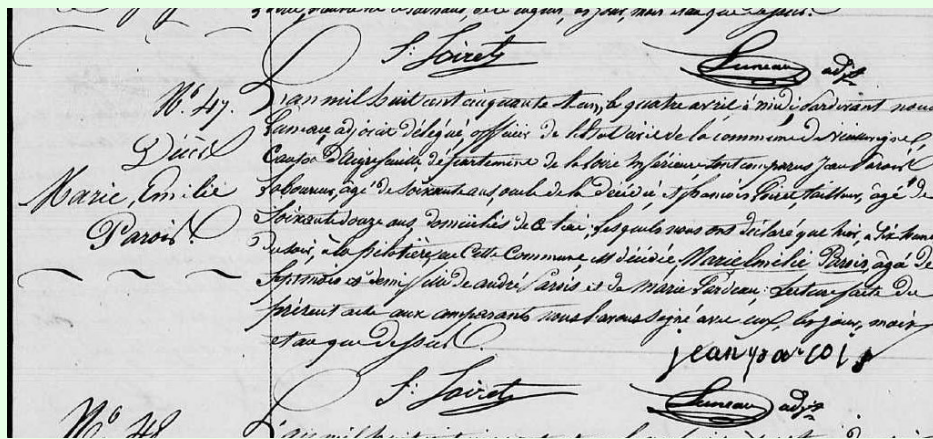 F. Loiret Luneau adjt
N.° 47.
Décès
Marie, Emilie
Parois.
L'an mil huit cent cinquante et un, le quatre avril à midi pardevant nous
Luneau adjoint délégué officier de l'état civil de la commune de Vieillevigne,
Canton d'aigrefeuille, département de la loire inférieure sont comparus jean Parois
laboureur, âgé de soixante ans, oncle de la décédée, et françois Loiret tailleur, âgé de
soixante douze ans, domiciliés de ce lieu, lesquels nous ont déclaré que hier, à six heures
du soir, à la en cette Commune est décédée, Marie Emélie Parois, âgée de
sept mois et demi fille de andré Parois et de marie Pardeau; Lecture faite du
présent acte aux comparants nous l'avons signé avec eux, les jour, mois
et an que dessus.
jean parois
F. Loiret Luneau adjt
N.° 48
L'an mil huit cent cinquante et un